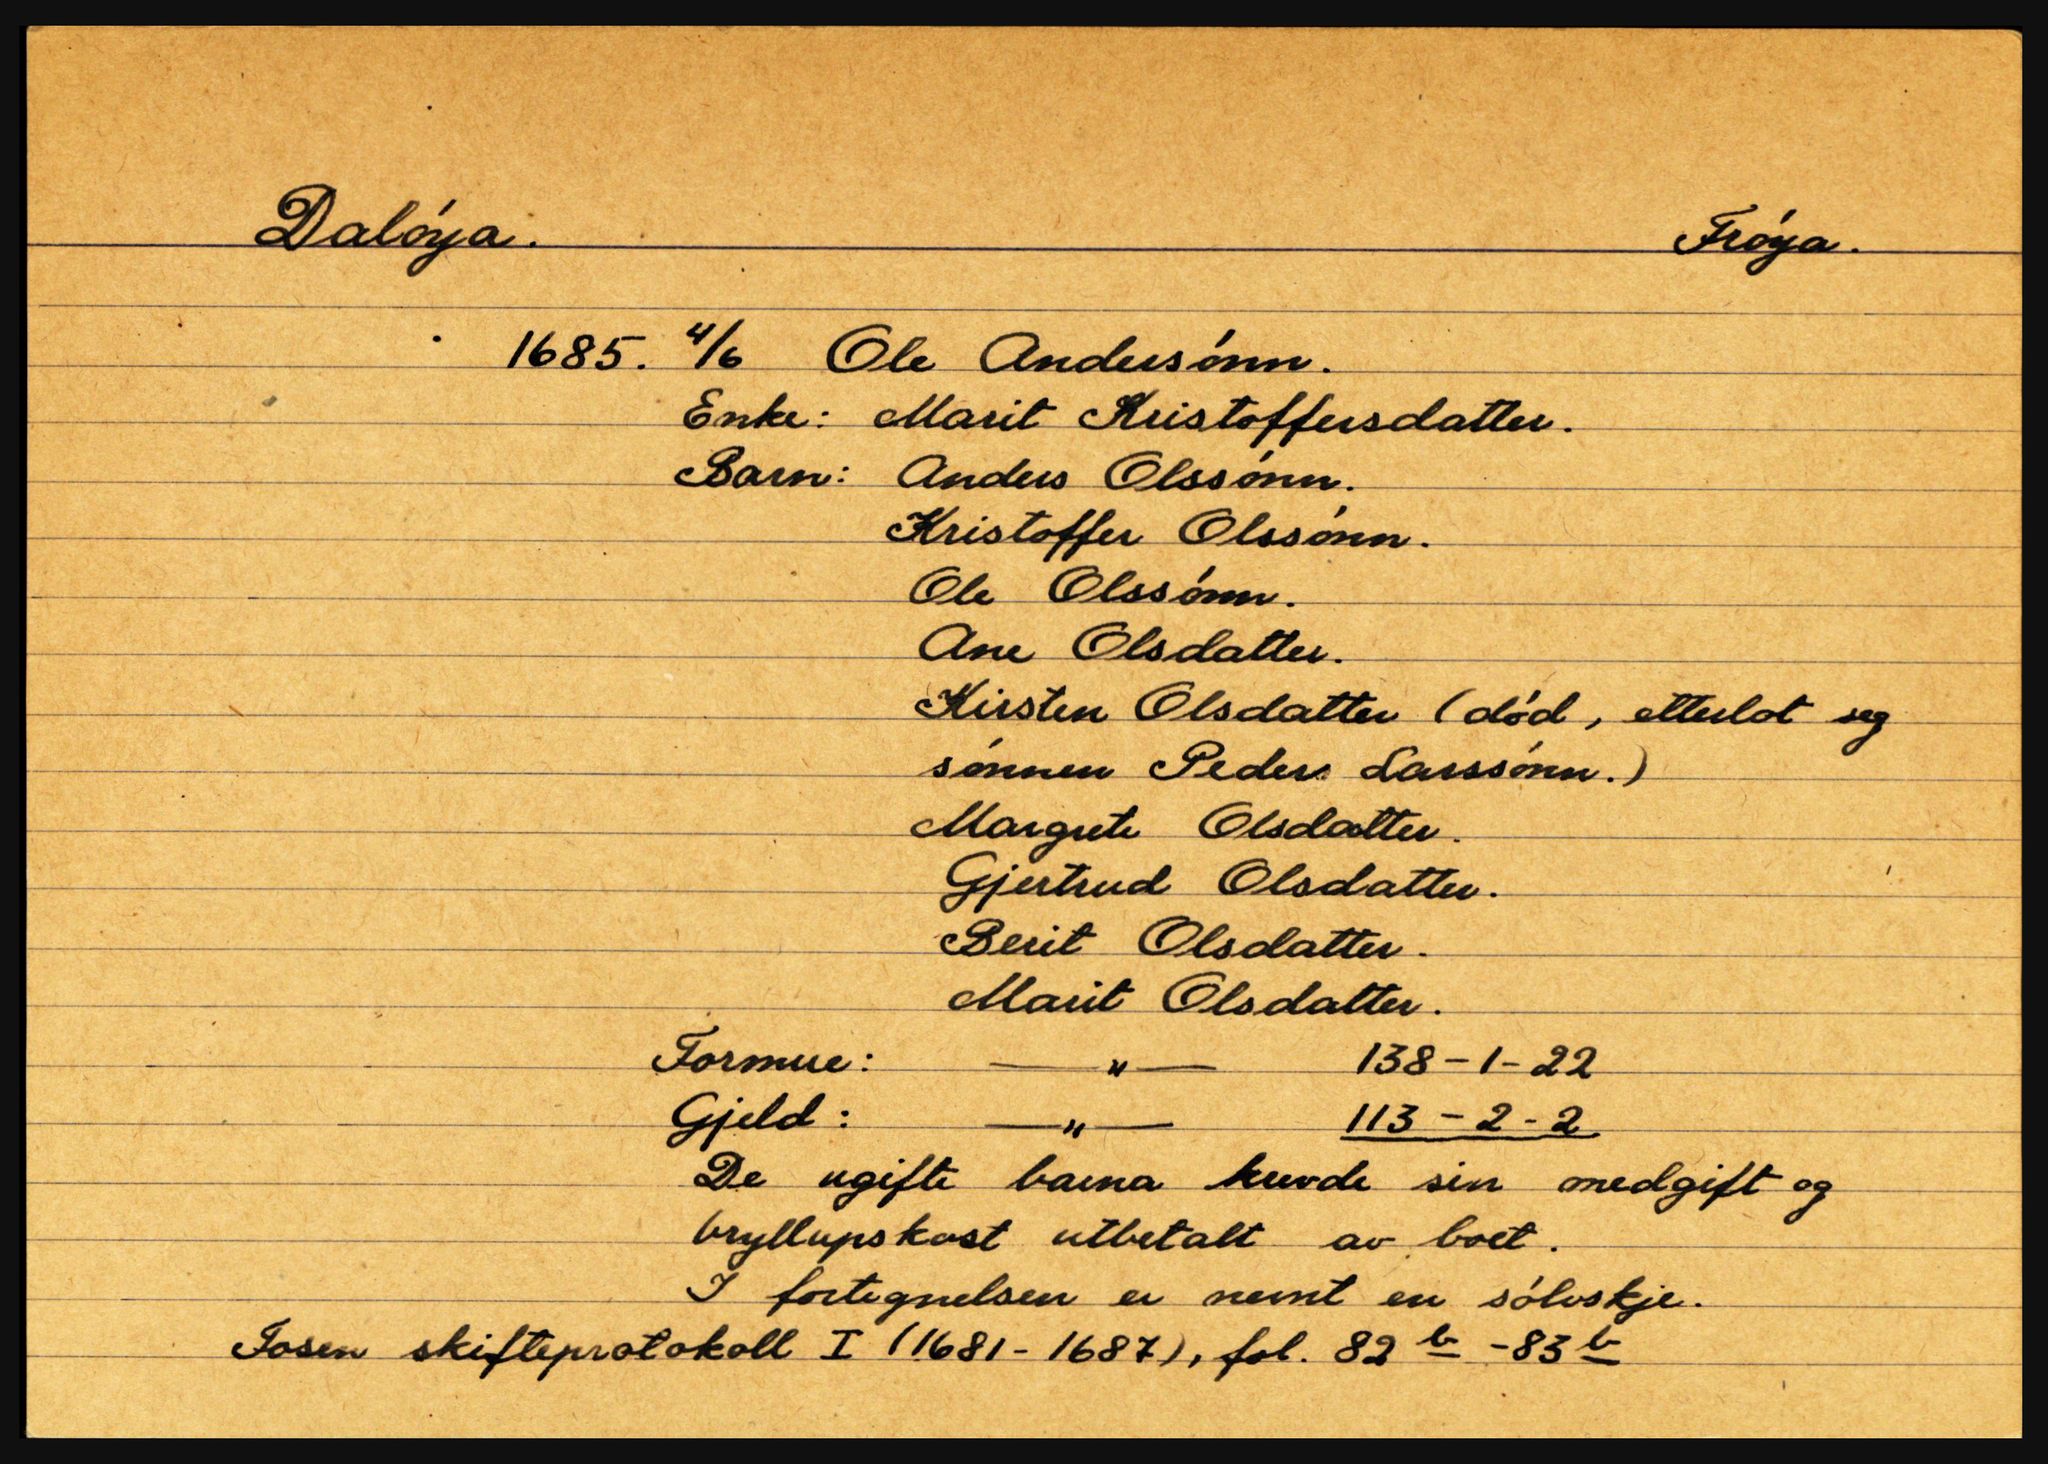 Dalóya. Fróya.
1685. 4/6 Ole Andersónn.
Enke: Marit Kristoffersdatter.
Barn: Anders Olssónn.
Kristoffer Olssónn.
Ole Olssónn.
Ane Olsdatter.
Kirsten Olsdatter (dód, etterlot seg
sónnen Peder Larssónn.)
Margrete Olsdatter.
Gjertrud Olsdatter.
Berit Olsdatter.
Marit Olsdatter.
Formue: — " — 138-1-22
Gjeld: — " — 113-2-2
De ugifte barna krevde sin medgift og
bryllupskost utbetalt av boet.
I fortegnelsen er nevnt en sólvskje.
Fosen skifteprotokoll I (1681-1687), fol. 82 b - 83 b